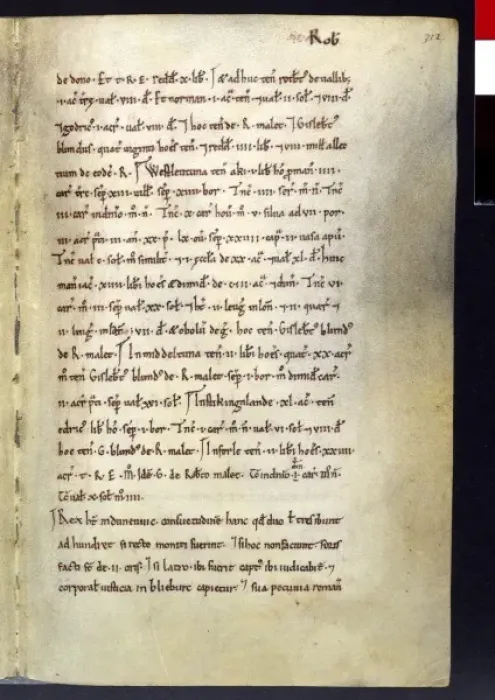 Rob 312
de dono · Et · t · R · E · redd x · lib · ⁊ adhuc ten
· viii · đ · Et norman · i · ac ten ⁊ ual ii · sol ⁊ viii đ
· i · acr ual viii đ · ⁊ hoc ten de · R · malet · ⁊ Gislebt
blundus · quat uiginti hoes ten ⁊ redd iiii lib · ⁊ viii mill allec
eode · R · ⁊ Westlentuna ten aki · i · lib hō p man · iiii ·
car tre sep xiii uill sep xiiii bor · Tnc · iiii · ser · m̄ · n̄ · Tnc
iii · car in dnio · m̄ · ii · Tnc · x · car hou m̄ · v · silua ad vii · por
· iii · acr p̄ti · iii · an · xx · p̄ · lx · ou sep · xxviii · cap · ii · uasa apu
Tnc ual · c · sol · m̄ similit · ⁊ · i · eccla de xx · ac · ⁊ ual xl · đ · huic
man iac · xiiii · libi hoes · de · c · iii · ac · ⁊ dim · Tnc vi ·
car · m̄ · iii · sep ual xx · sol · ⁊ ht · ii · leug in lon · ⁊ · ii · quar · ⁊
· ii · leug · in lat · vii · đ · ⁊ obolu de g · hoc ten Gislebt blund
de R · malet ⁊ In middeltuna ten · ii · libi hoes · quat · xx · acr
m̄ ten Gislebt blund de · R · malet · sep · i · bor · m̄ dimid car ·
· ii · acr p̄ti · sep ual xvi · sol · ⁊ In stikingalande · xl · ac · ten
edric lib hō · sep · i · bor · Tnc · i · car · m̄ · n̄ · ual · vi · sol ⁊ viii đ
hoc ten · G · blond de · R · malet · ⁊ Inforle ten · ii · libi hoes · xxiiii
acr · t · R · E · m̄ · Ide · G · de Rotbto malet · Tc in dnio · i · car m̄ n̄
Tc ual x · sol m̄ iiii ·
⁊ Rex ht in duneuuic · consuetudine hanc qđ duo t tres ibunt
ad hundret si recte moniti fuerint · ⁊ si hoc non faciunt · foris
facti st de · ii · oris · ⁊ si latro · ibi fuerit capt ibi iudicabit · ⁊
corporal iusticia in blieburc capietur · ⁊ sua pecunia roman